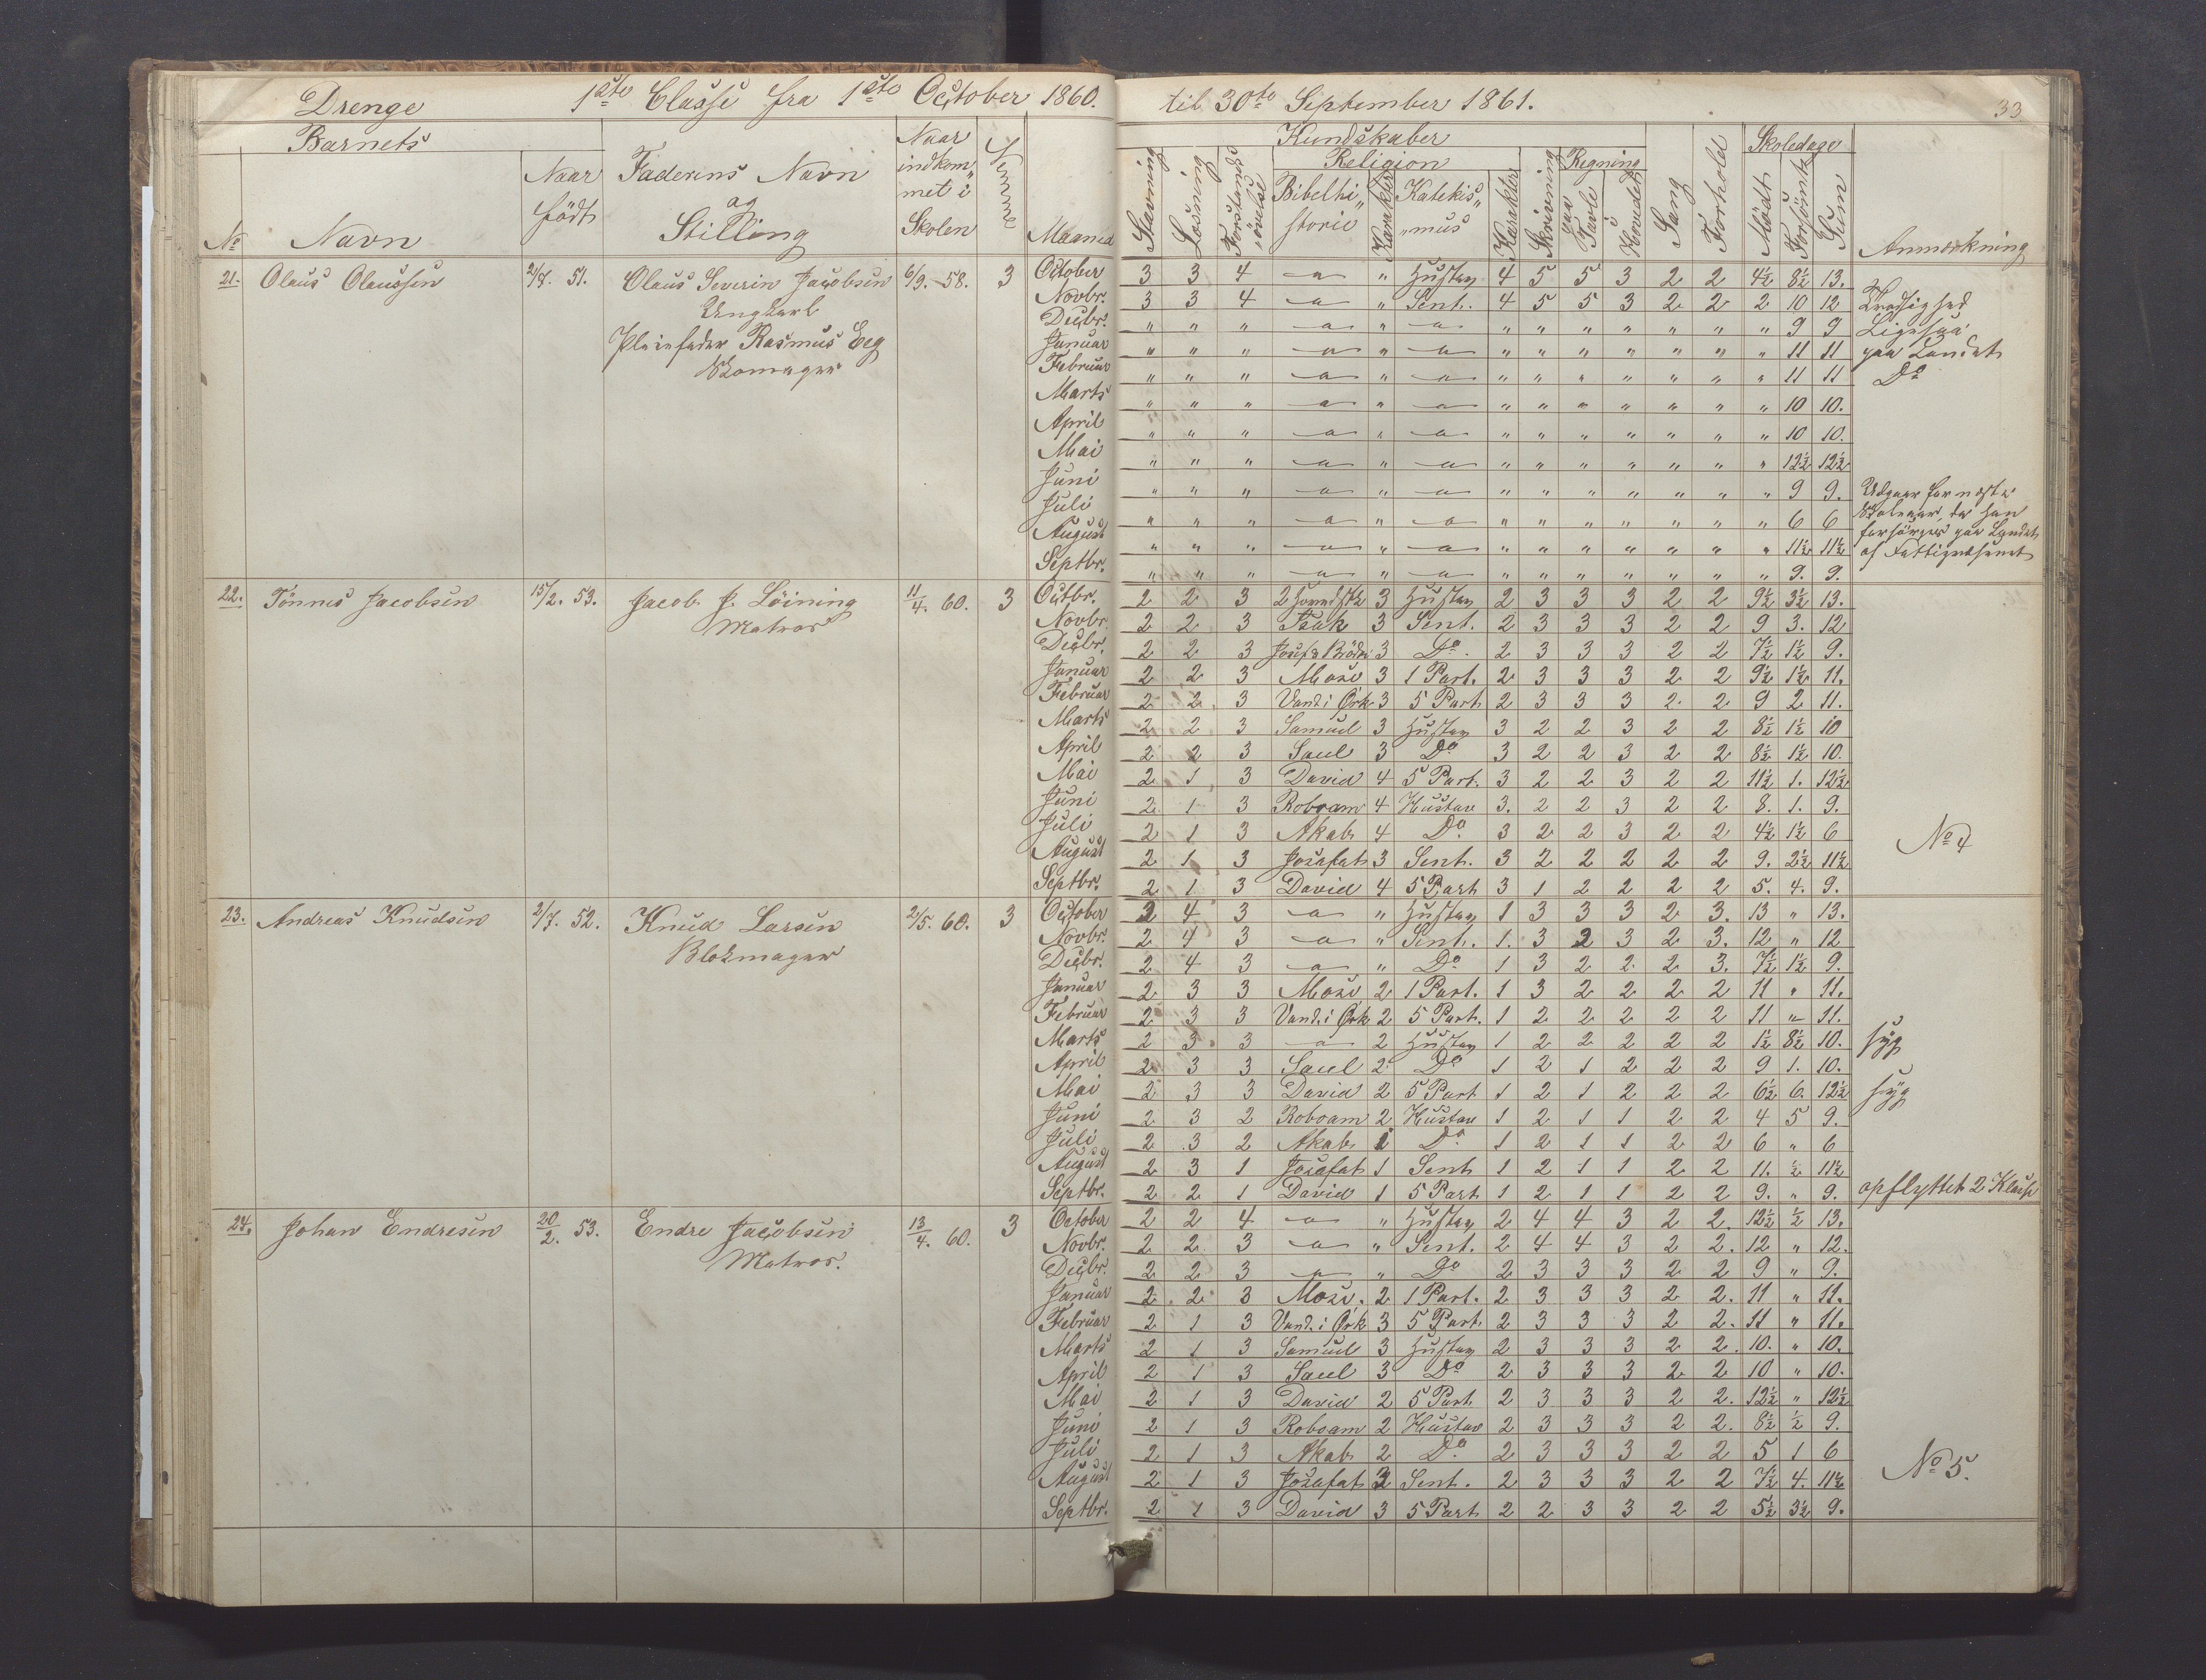 Drenge 1ste Classe fra 1ste October 1860. til 30te September 1861. 33
Barnets
No Navn Naar født Faderens Navn og Stilling Naar indkommet i Skolen Evne Maaned
Kundskaber
Religion Regning Skoledage
Stavning Læsning Forstandsøvelse Bibelhistorie Karakter Katekis„ „mus Karakter Skrivning paa Tavle Hovedet Sang Forhold Mödt Forsömt Sum Anmærkning
21. Olaus Olaussen 2/8. 51. Olaus Severin Jacobsen 6/9. 58. 3
Ungkarl
Pleiefader Rasmus Eeg
Skomager
October 3 3 4 — „ Hustav 4 5 5 3 2 2 4½ 8½ 13.
Novbr. 3 3 4 — „ Sent. 4 5 5 3 2 2 2 10 12 Kradsighed
Decbr. „ „ „ — „ — „ „ „ „ „ „ „ 9 9 Ligesaa
Januar „ „ „ — „ — „ „ „ „ „ „ „ 11 11 paa Landet
Februar „ „ „ — „ — „ „ „ „ „ „ „ 11 11 Do
Marts „ „ „ — „ — „ „ „ „ „ „ „ 10 10.
April „ „ „ — „ — „ „ „ „ „ „ „ 10 10.
Mai „ „ „ — „ — „ „ „ „ „ „ „ 12½ 12½
Juni „ „ „ — „ — „ „ „ „ „ „ „ 9 9. Udgaar for næste
Juli „ „ „ — „ — „ „ „ „ „ „ „ 6 6 Skoleaar, da han
August „ „ „ — „ — „ „ „ „ „ „ „ 11½ 11½ forsörges paa Landet
Septbr. „ „ „ — „ — „ „ „ „ „ „ „ 9. 9. af Fattigvæsenet
22. Tönnes Jacobsen 15/2. 53. Jacob J. Löining 11/4. 60. 3
Matros
Octbr. 2 2 3 2 Hovedstk 3 Hustav 2 3 3 3 2 2 9½ 3½ 13.
Novbr. 2 2 3 Isak 3 Sent. 2 3 3 3 2 2 9 3. 12
Decbr. 2 2 3 Josef & Brödr 3 Do. 2 3 3 3 2 2 7½ 1½ 9.
Januar 2 2 3 Mose 3 1 Part. 2 3 3 3 2 2 9½ 1½ 11.
Februar 2 2 3 Vand. i Ørk 3 5 Part 2 3 3 3 2 2 9 2 11.
Marts 2 2 3 Samuel 3 Hustav 3 2 2 3 2 2 8½ 1½ 10
April 2 2 3 Saul 3 Do 3 2 2 3 2 2 8½ 1½ 10.
Mai 2 1 3 David 4 5 Part. 3 2 2 3 2 2 11½ 1. 12½
Juni 2 1 3 Roboam 4 Hustav 3. 2 2 3 2 2 8. 1. 9.
Juli 2 1 3 Akab 4 Do 3 2 2 3 2 2 4½ 1½ 6 No 4
August 2 1 3 Josafat 3 Sent. 3 2 2 2 2 2 9. 2½ 11½
Septbr. 2 1 3 David 4 5 Part 3 1 2 2 2 2 5. 4. 9.
23. Andreas Knudsen 2/7. 52. Knud Larsen 2/5. 60. 3
Blokmager
October 2 4 3 — „ Hustav 1 3 3 3 2 3. 13 „ 13.
Novbr. 2 4 3 — „ Sent. 1. 3 2 3 2 3. 12 „ 12
Decbr. 2 4 3 — „ Do 1 3 2 2 2 3. 7½ 1½ 9.
Januar 2 3 3 Mose 2 1 Part. 1 3 2 2 2 2 11 „ 11.
Februar 2 3 3 Vand. i Ørk 2 5 Part. 1 2 2 2 2 2 11 „ 11.
Marts 2 3 3 — 2 Hustav 1 2 2 2 2 2 1½ 8½ 10. syg
April 2 3 3 Saul 2 Do 1 2 1 2 2 2 9 1. 10.
Mai 2 3 3 David 2 5 Part 1 2 1 2 2 2 6½ 6. 12½ syg
Juni 2 3 2 Roboam 2 Hustav 1 2 1 1 2 2 4 5 9.
Juli 2 3 2 Akab 1 Do 1 2 1 1 2 2 6 „ 6
August 2 3 1 Josafat 1 Sent 1 2 1 1 2 2 11. ½ 11½
Septbr. 2 2 1 David 1 5 Part 1 2 1 1 2 2 9. „ 9. opflyttet 2 Klasse
24. Johan Endresen 20/2. 53. Endre Jacobsen 13/4. 60. 3
Matros.
October 2 2 4 — „ Hustav 2 4 4 3 2 2. 12½ ½ 13.
Novbr. 2 2 3 — „ Sent. 2 4 4 3 2 2. 12 „ 12.
Decbr. 2 2 3 — „ Do 2 3 3 3 2 2 9 „ 9.
Januar 2 2 3 Mose. 2 1 Part. 2 3 3 3 2 2. 11 „ 11.
Februar 2 1 3 Vand. i Ørk 3 5 Part. 2 3 3 3 2 2. 11 „ 11.
Marts 2 1 3 Samuel 3 Hustav 2 3 3 3 2 2. 10. „ 10.
April 2 1 3 Saul 3 Do 2 3 3 3 2 2 10 „ 10.
Mai 2 1 3 David 2 5 Part. 2 3 3 3 2 2. 12½ „ 12½
Juni 2 1 3 Roboam 2 Hustav 2 3 3 3 2 2. 8½ ½ 9.
Juli 2 1 3 Akab 2 Do 2 3 3 3 2 2 5 1 6 No 5.
August 2 1 3 Josafat 3 Sent. 2 3 3 3 2 2 7½ 4. 11½
Septbr. 2 1 3 David 3 5 Part 2 2 3 3 2 2 5½ 3½ 9.